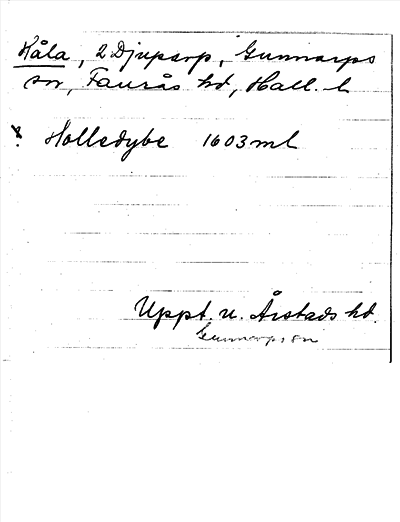 Kåla, 2 Djuparp, Gunnarps
sn, Faurås hd, Hall. l
? Holledybe 1603 ml
Uppt. u. Årstads hd.
Gunnarps sn